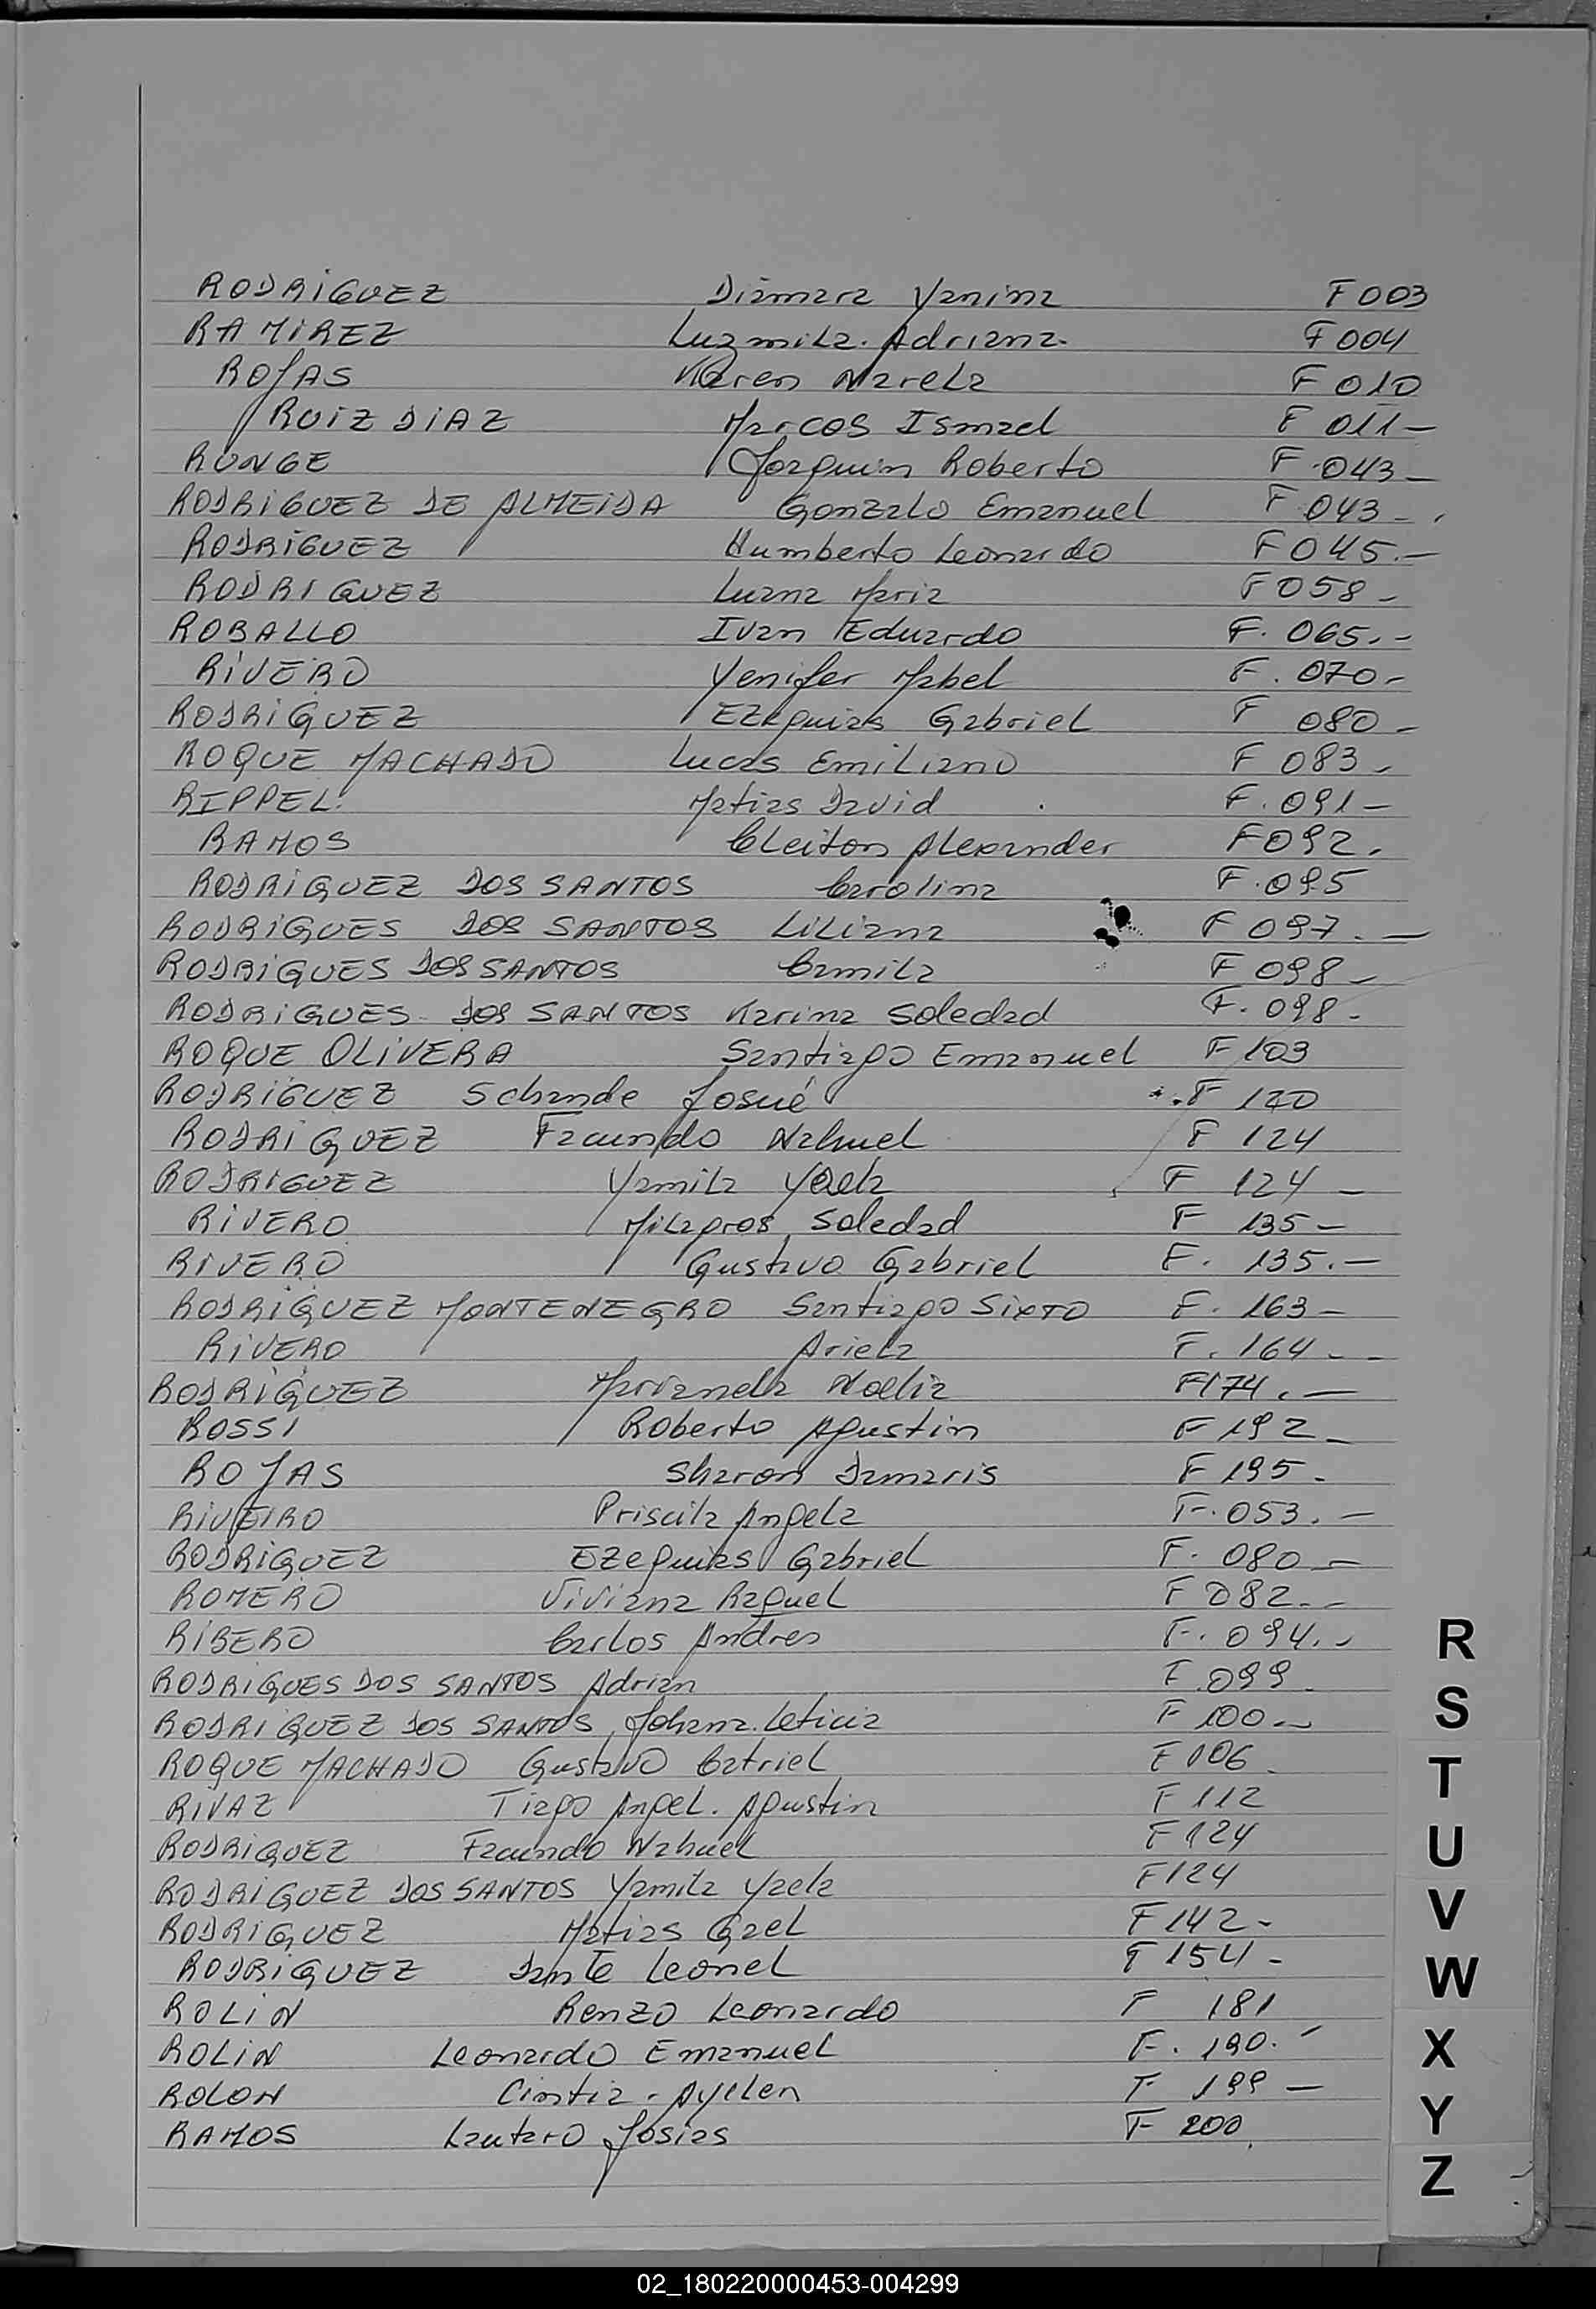 RODRIGUEZ Diamara Yanina F003
RAMIREZ Luzmila. Adriana. F004
ROJAS Karen Narela F 010
RUIZ DIAZ Marcos Ismael F 011-
RUNGE Joaquin Roberto F 043-
RODRIGUEZ DE ALMEIDA Gonzalo Emanuel F 043-
RODRIGUEZ Humberto Leonardo F045.-
RODRIGUEZ Luana Maria F058-
ROBALLO Ivan Eduardo F. 065.-
RIVERO Yenifer Mabel F. 070-
RODRIGUEZ Ezequias Gabriel F 080-
ROQUE MACHADO Lucas Emiliano F 083-
RIPPEL. Matias David F. 091-
RAMOS Cleiton Alexander F092.
RODRIGUEZ DOS SANTOS Carolina F.095
RODRIGUES DOS SANTOS Liliana F 097.-
RODRIGUES DOS SANTOS Camila F 098-
RODRIGUES DOS SANTOS Karina Soledad F. 098-
ROQUE OLIVERA Santiago Emanuel F 103
RODRIGUEZ Schande Josué F 120
RODRIGUEZ Facundo Nahuel F 124
RODRIGUEZ Yamila Yaela F 124-
RIVERO Milagros Soledad F 135-
RIVERO Gustavo Gabriel F. 135.-
RODRIGUEZ MONTENEGRO Santiago Sixto F. 163-
RIVERO Ariela F. 164--
RODRIGUEZ Marianela Noelia F174.-
ROSSI Roberto Agustin F 192-
ROJAS Sharon Damaris F 195-
RIVEIRO Priscila Angela F.053.-
RODRIGUEZ Ezequias Gabriel F. 080-
ROMERO Viviana Raquel F 082.-
RIBERO Carlos Andres F. 094.-
RODRIGUES DOS SANTOS Adrian F.099.
RODRIGUEZ DOS SANTOS, Johana. Leticia F 100.-
ROQUE MACHADO Gustavo Catriel F106.
RIVAZ Tiago Angel. Agustin F112
RODRIGUEZ Facundo Nahuel F124
RODRIGUEZ DOS SANTOS Yamila Yaela F124
RODRIGUEZ Matias Gael F142-
RODRIGUEZ Dante Leonel F154-
ROLIN Renzo Leonardo F 181
ROLIN Leonardo Emanuel F. 190.-
ROLON Cintia. Ayelen F 199-
RAMOS Lautaro Josias F 200.
R
S
T
U
V
W
X
Y
Z
02_180220000453-004299